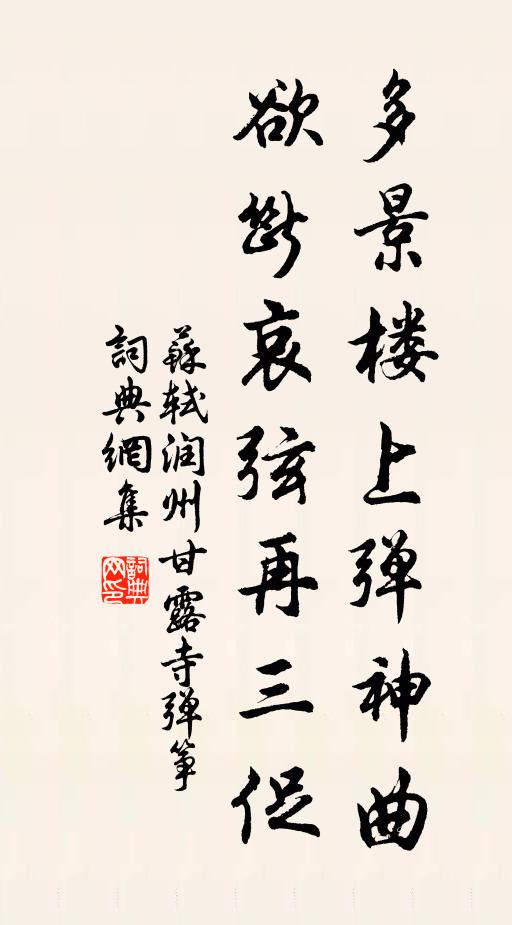 多景楼上弹神曲
欲断哀弦再三促
蘇轼润州甘露寺弹筝
詞典網集
詞典网印